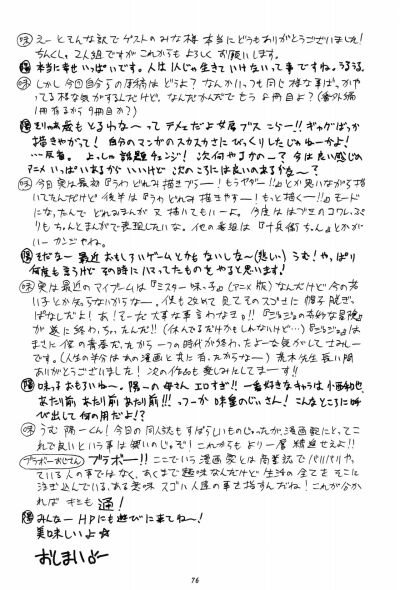 ㊍えーとそんな訳でゲストのみな様本当にどうもありがとうございました!
ちんくしゃ2人組ですがこれからもよろしくお願いします。
本当に幸せいっぱいです。人は1人じゃ生きていけないって事ですね。うるうる。
しかし今回自分らの原稿はどうよ?なんかいっつも同じ様な事ばっかや
ってる様な気がするんだけど。なんだかんだでもう8冊目よ?(番外編
1冊有るから9冊目か?)
そりゃあ歳もとるわな~って
描きやがって!自分のマンガのスカスカさにびっくりしたじゃねーかよ!
…反省。よっしゃ話題チェンジ!次何やるかのー?今は良い感じの
アニメいっぱいあるからいいけど次のころには良いのあるかな~?
今日実は最初『うわどれみ描きづらー!もうヤダー!!』とか思いながら描
いてたんだけど後半は『うわどれみ描きやすー!もっと描くー!!』モード
になったんでどれみまんが又描いてもいーよ。今度は
りもちゃんとまんがで表現したいな。他の番組は『十兵衛ちゃん』とかが
いーカンジやね。
そだなー最近おもしろいゲームとかもないしな~(悲しい)うむ!やっぱり
何度も言うけどその時にハマってたものをやると思います!
実は最近のマイブームは『ミスター味っ子』(アニメ版)なんだけど今の若
い子とか知らないからなー。俺も改めて見てそのスゴさに帽子脱ぎっ
ぱなしだよ!あ!でー大事な事言わなきゃ!!『ジョジョの奇妙な冒険』
が遂に終わっちゃったんだ!!(休んでるだけかもしれないけど…)『ジョジョ』は
まさに俺の青春だったから一つの時代が終わったよーな気がしてさみしー
です。(人生の半分はあの漫画と共に有ったからなー)荒木先生長い間
ありがとうございました!次の作品も楽しみにしてまーす!!
味っ子おもろいね~。陽一の母さんエロすぎ!!一番好きなキャラは小西和也
あたり前あたり前あたり前!!!っつーか味皇のじいさん!こんなところに呼
び出して何の用だよ!?
うむ陽一くん!今日の同人誌もすばらしいものじゃったが漫画家にとってこ
れで良いという事は無いのじゃぞ!これからもより一層精進せえよ!!
ブラボーおじさん ブラボー!!ここでいう漫画家とは商業誌でバリバリやっ
ている人の事ではなく、あくまで趣味なんだけど生活の全てをそこに
注ぎ込んでいる、ある意味スゴい人達の事を指すんだね!これが分か
ればキミも通!
みんなーHPにも遊びに来てね~!
美味しいよ☆
おしまいよー
76